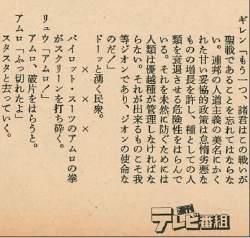 ギレン「もう一つ、諸君!この戦いが
聖戦であることを忘れてはならな
い。連邦の人道主義の美名にかく
れた甘い妥協的政策は怠惰劣悪な
ものの増長を許し、種としての人
類を衰退させる危険性をはらんで
いる。それを未然に防ぐためには
人類は優越種が管理しなければな
らない。それが出来るものこそ我
等ジオンであり、ジオンの使命な
のだ!」
ドーッと湧く民衆。
×
×
パイロット・スーツのアムロの拳
がスクリーンを打ち砕く。
リュウ「アムロ!」
アムロ、破片をはらうと。
アムロ「ふっ切れたよ」
スタスタと去っていく。
週刊
テレビ番組